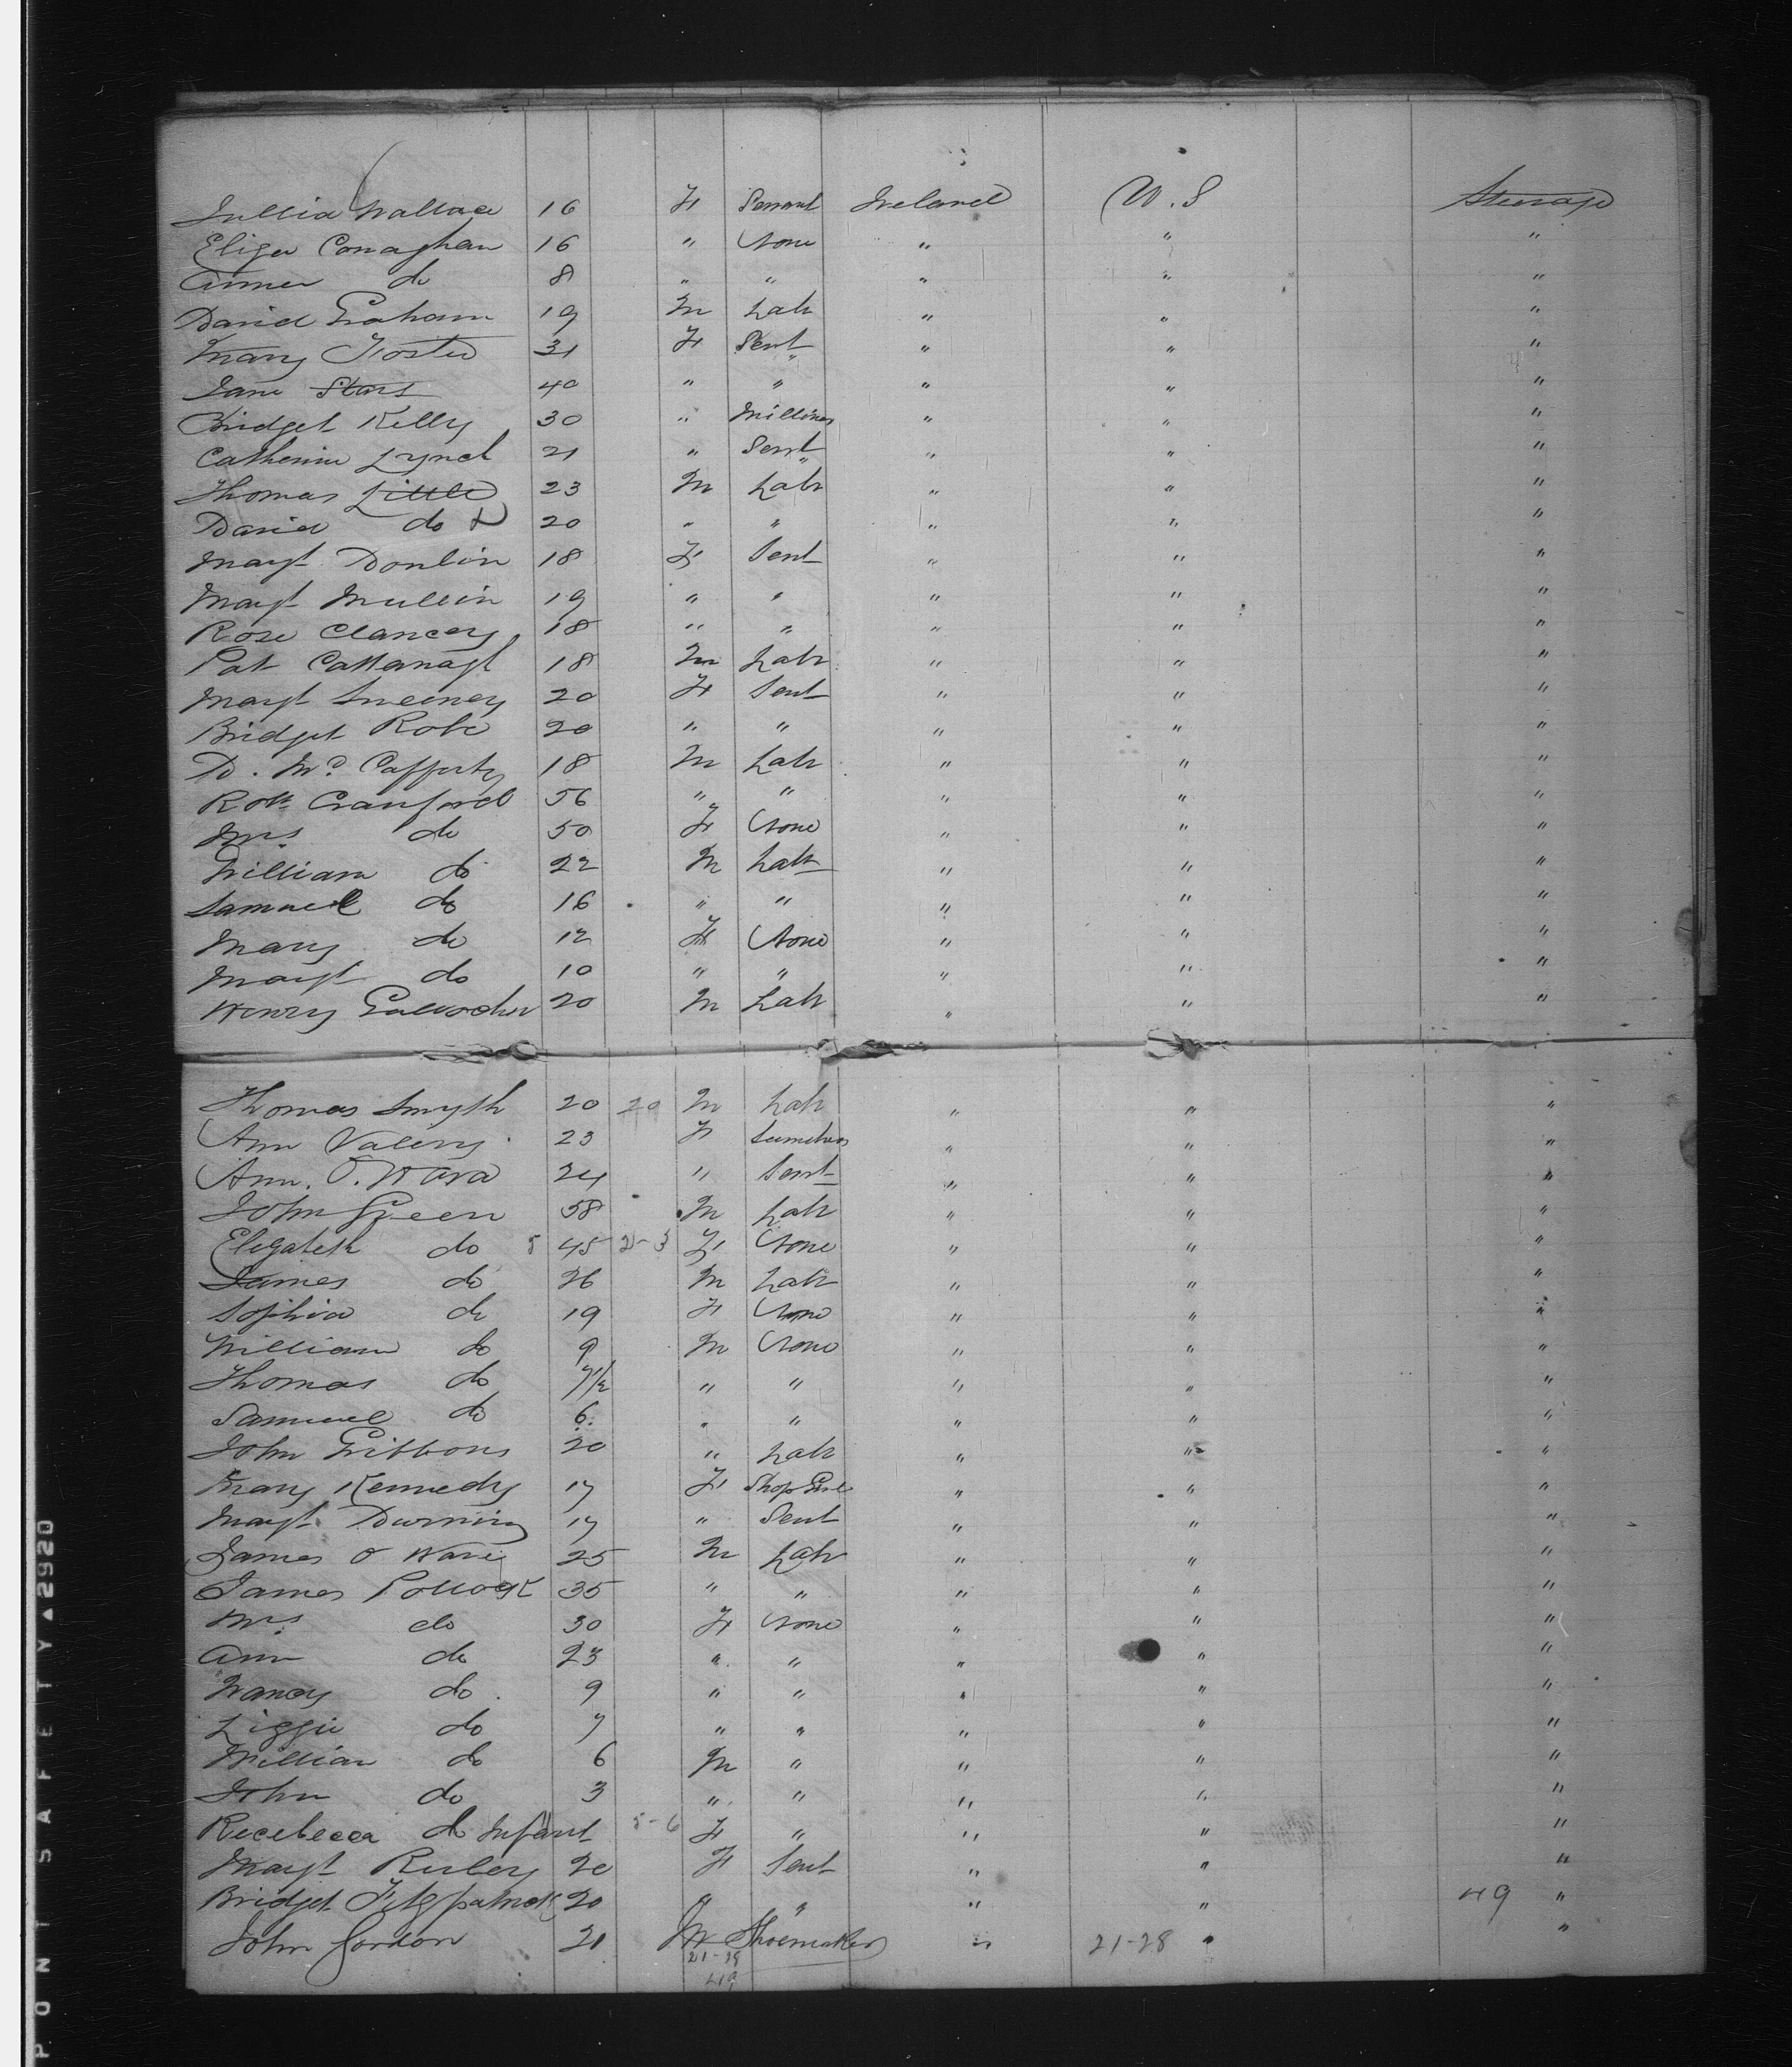 Jullia Wallace 16 F Servant Ireland U.S Steerage
Eliza Conaghan 16 " None " " "
Annie do 8 " " " " "
David Graham 19 M Labr " " "
Mary Foster 31 F Servt " " "
Jane Stars 40 " " " " "
Bridget Kelly 30 " Milliner " " "
Catherine Lynch 21 " Servt " " "
Thomas Little 23 M Labr " " "
David do 20 " " " " "
Margt Donlin 18 F Servt " " "
Margt Mullin 19 " " " " "
Rose Clancey 18 " " " " "
Pat Cattanagh 18 M Labr " " "
Margt Sweeney 20 F Servt " " "
Bridget Robe 20 " " " " "
D. Mc Cafferty 18 M Labr " " "
Robt Crawford 56 " " " " "
Mrs do 50 F None " " "
William do 22 M Labr " " "
Samuel do 16 " " " " "
Mary do 12 F None " " "
Margt do 10 " " " " "
Henry Gallocher 20 M Labr " " "
Thomas Smyth 20 20 M Labr " " "
Ann Valery 23 F " " "
Ann O.Hara 24 " Servt " " "
John Green 58 M Labr " " "
Elizabeth do 5 45 2-3 F None " " "
James do 26 M Labr " " "
Sophia do 19 F None " " "
William do 9 M None " " "
Thomas do 7½ " " " " "
Samuel do 6 " " " " "
John Gibbons 20 " Labr " " "
Mary Kennedy 17 F Shop Girl " " "
Margt Durning 17 " Servt " " "
James O Hare 25 M Labr " " "
James Pollock 35 " " " " "
Mrs do 30 F None " " "
Ann do 23 " " " " "
Nancy do 9 " " " " "
Lizzie do 7 " " " " "
William do 6 M " " " "
John do 3 " " " " "
Recebecca do Infant 5-6 F " " " "
Margt Ruley 20 F Servt " " "
Bridget Fitzpatrick 20 " " " " 49 "
John Gordon 21 M Shoemaker " 21-28 " "
21-28
49
PONT SAFETY ▲2920